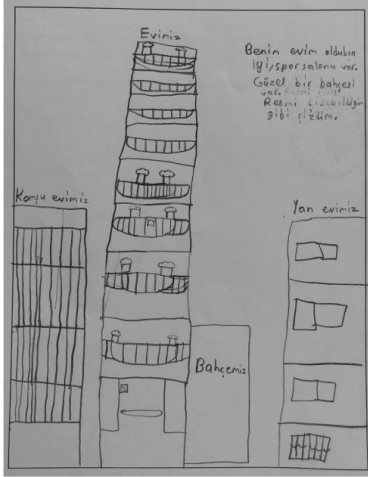 Evimiz
Benim evim oldukça
iyi, spor salonu var.
Güzel bir bahçesi
var.
Resmi çizebildiğim
gibi çizdim.
Komşu evimiz
Yan evimiz
Bahçemiz